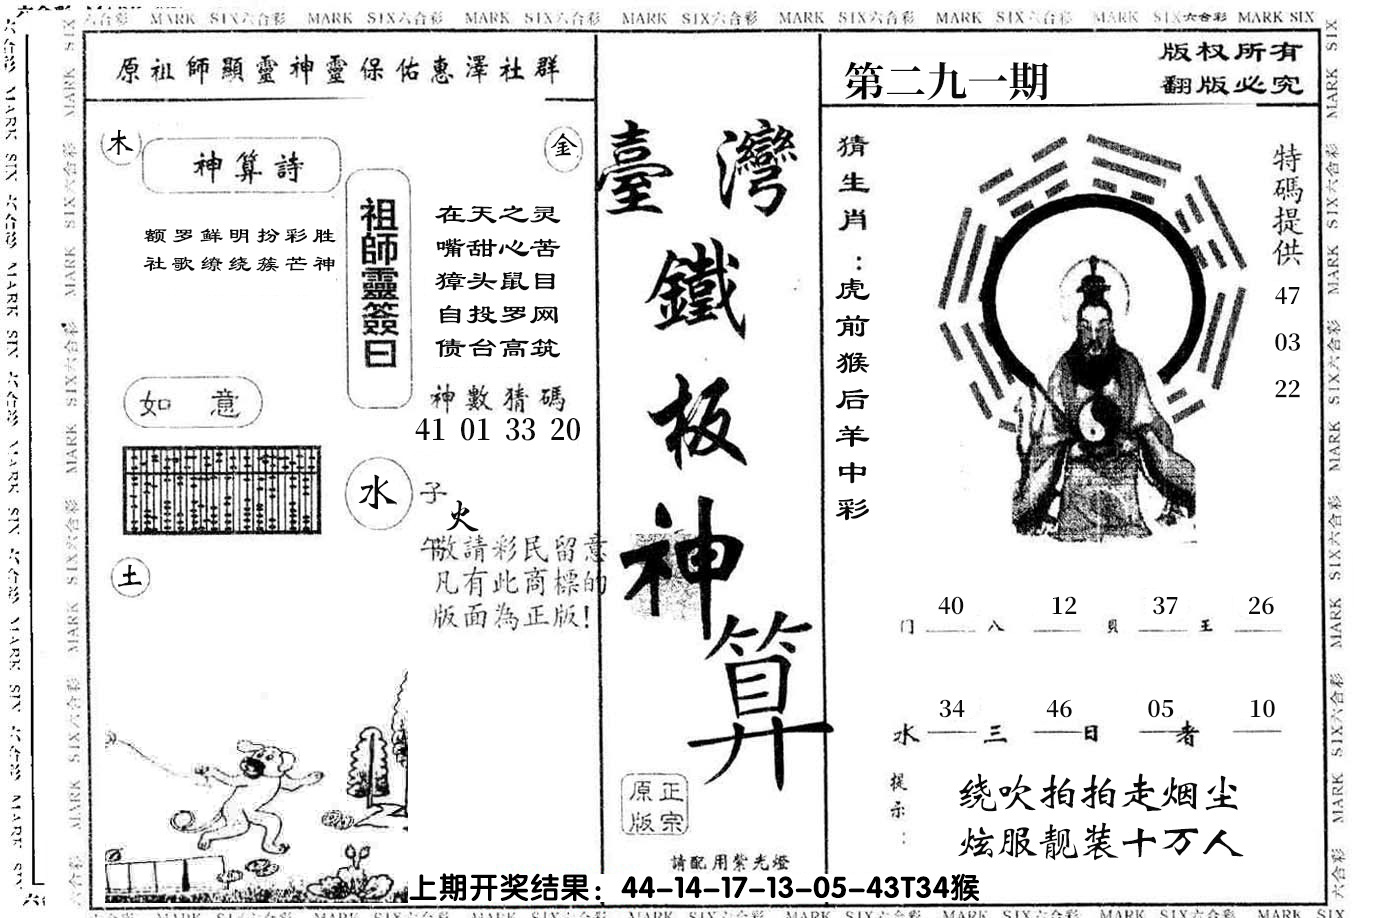 MARK SIX六合彩 MARK SIX六合彩 MARK SIX六合彩 MARK SIX六合彩 MARK SIX六合彩 MARK SIX六合彩 MARK SIX六合彩 MARK SIX
原祖師顯靈神靈保佑惠澤社群
木
神算詩
金
额罗鲜明扮彩胜
社歌缭绕蔟芒神
祖師靈簽曰
在天之灵
嘴甜心苦
獐头鼠目
自投罗网
债台高筑
神數猜碼
41 01 33 20
如意
水
子
火
午
敬請彩民留意
凡有此商標的
版面為正版!
土
臺灣
鐵
板
神
算
正宗
原版
請配用紫光燈
第二九一期
版权所有
翻版必究
猜生肖：虎前猴后羊中彩
特碼提供
47
03
22
40 12 37 26
门 八 贝 王
34 46 05 10
水 三 日 者
提示：
绕吹拍拍走烟尘
炫服靓装十万人
上期开奖结果：44-14-17-13-05-43T34猴